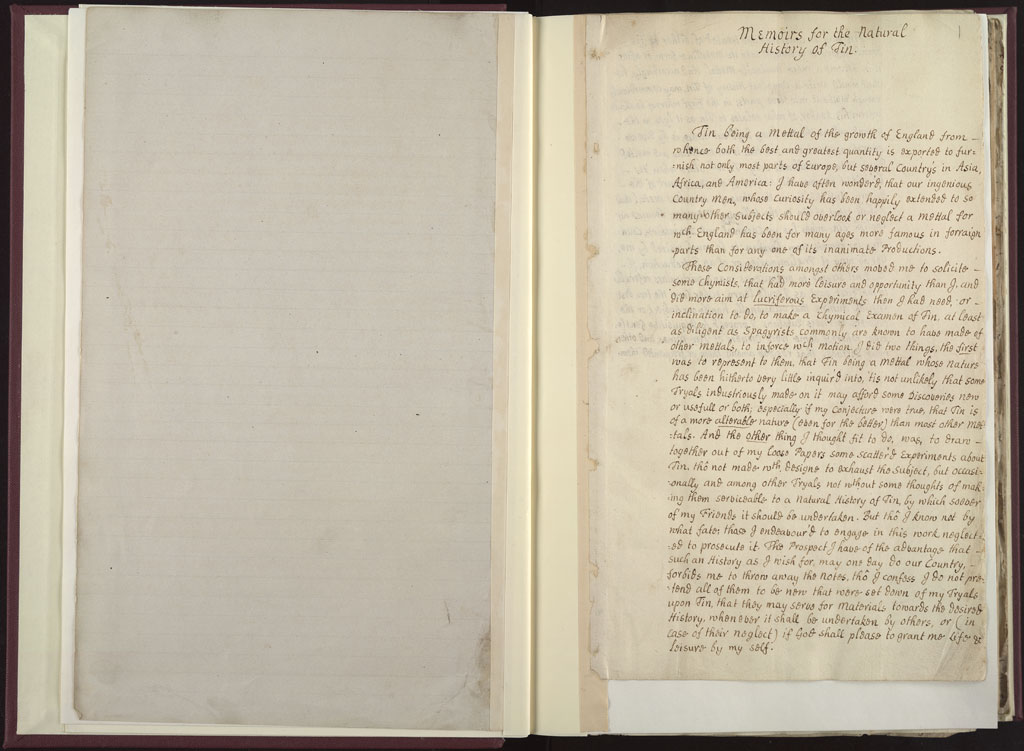 Memoirs for the Natural
History of Tin.
1
Tin being a Mettal of the growth of England from
whence both the best and greatest quantity is exported to fur=
=nish not only most parts of Europe, but several Country's in Asia,
Africa, and America: I have often wonder'd, that our ingenious
Country Men, whose Curiosity has been happily extended to so
many other Subjects should overlook or neglect a Mettal for
wch England has been for many ages more famous in forraign
parts than for any one of its inanimate Productions.
These Considerations amongst others moved me to solicite
some Chymists, that had more leisure and opportunity than I, and
did more aim at lucriferous Experiments then I had need, or
inclination to do, to make a Chymical Examen of Tin, at least
as diligent as Spagyrists commonly are known to have made of
other Mettals, to inforce wch motion I did two things, the first
was to represent to them, that Tin being a Mettal whose Nature
has been hitherto very little inquir'd into, 'tis not unlikely that some
Tryals industriously made on it may afford some Discoveries new
or usefull or both; especially if my Conjecture were true, that Tin is
of a more alterable nature (even for the better) than most other Met=
=tals. And the other thing I thought fit to do, was, to draw
together out of my loose Papers some scatter'd Experiments about
Tin, thô not made wth designe to exhaust the subject, but occasi=
=onally and among other Tryals not wthout some thoughts of mak=
ing them serviceable to a Natural History of Tin, by which soever
of my Friends it should be undertaken. But thô I know not by
what fate; those I endeavour'd to engage in this work neglect=
=ed to prosecute it. The Prospect I have of the advantage that
such an History as I wish for, may one day do our Country,
forbids me to throw away the Notes, thô I confess I do not pre=
=tend all of them to be new that were set down of my Tryals
upon Tin, that they may serve for Materials towards the desired
History, whenever it shall be undertaken by others, or (in
Case of their neglect) if God shall please to grant me Life &
Leisure by my self.